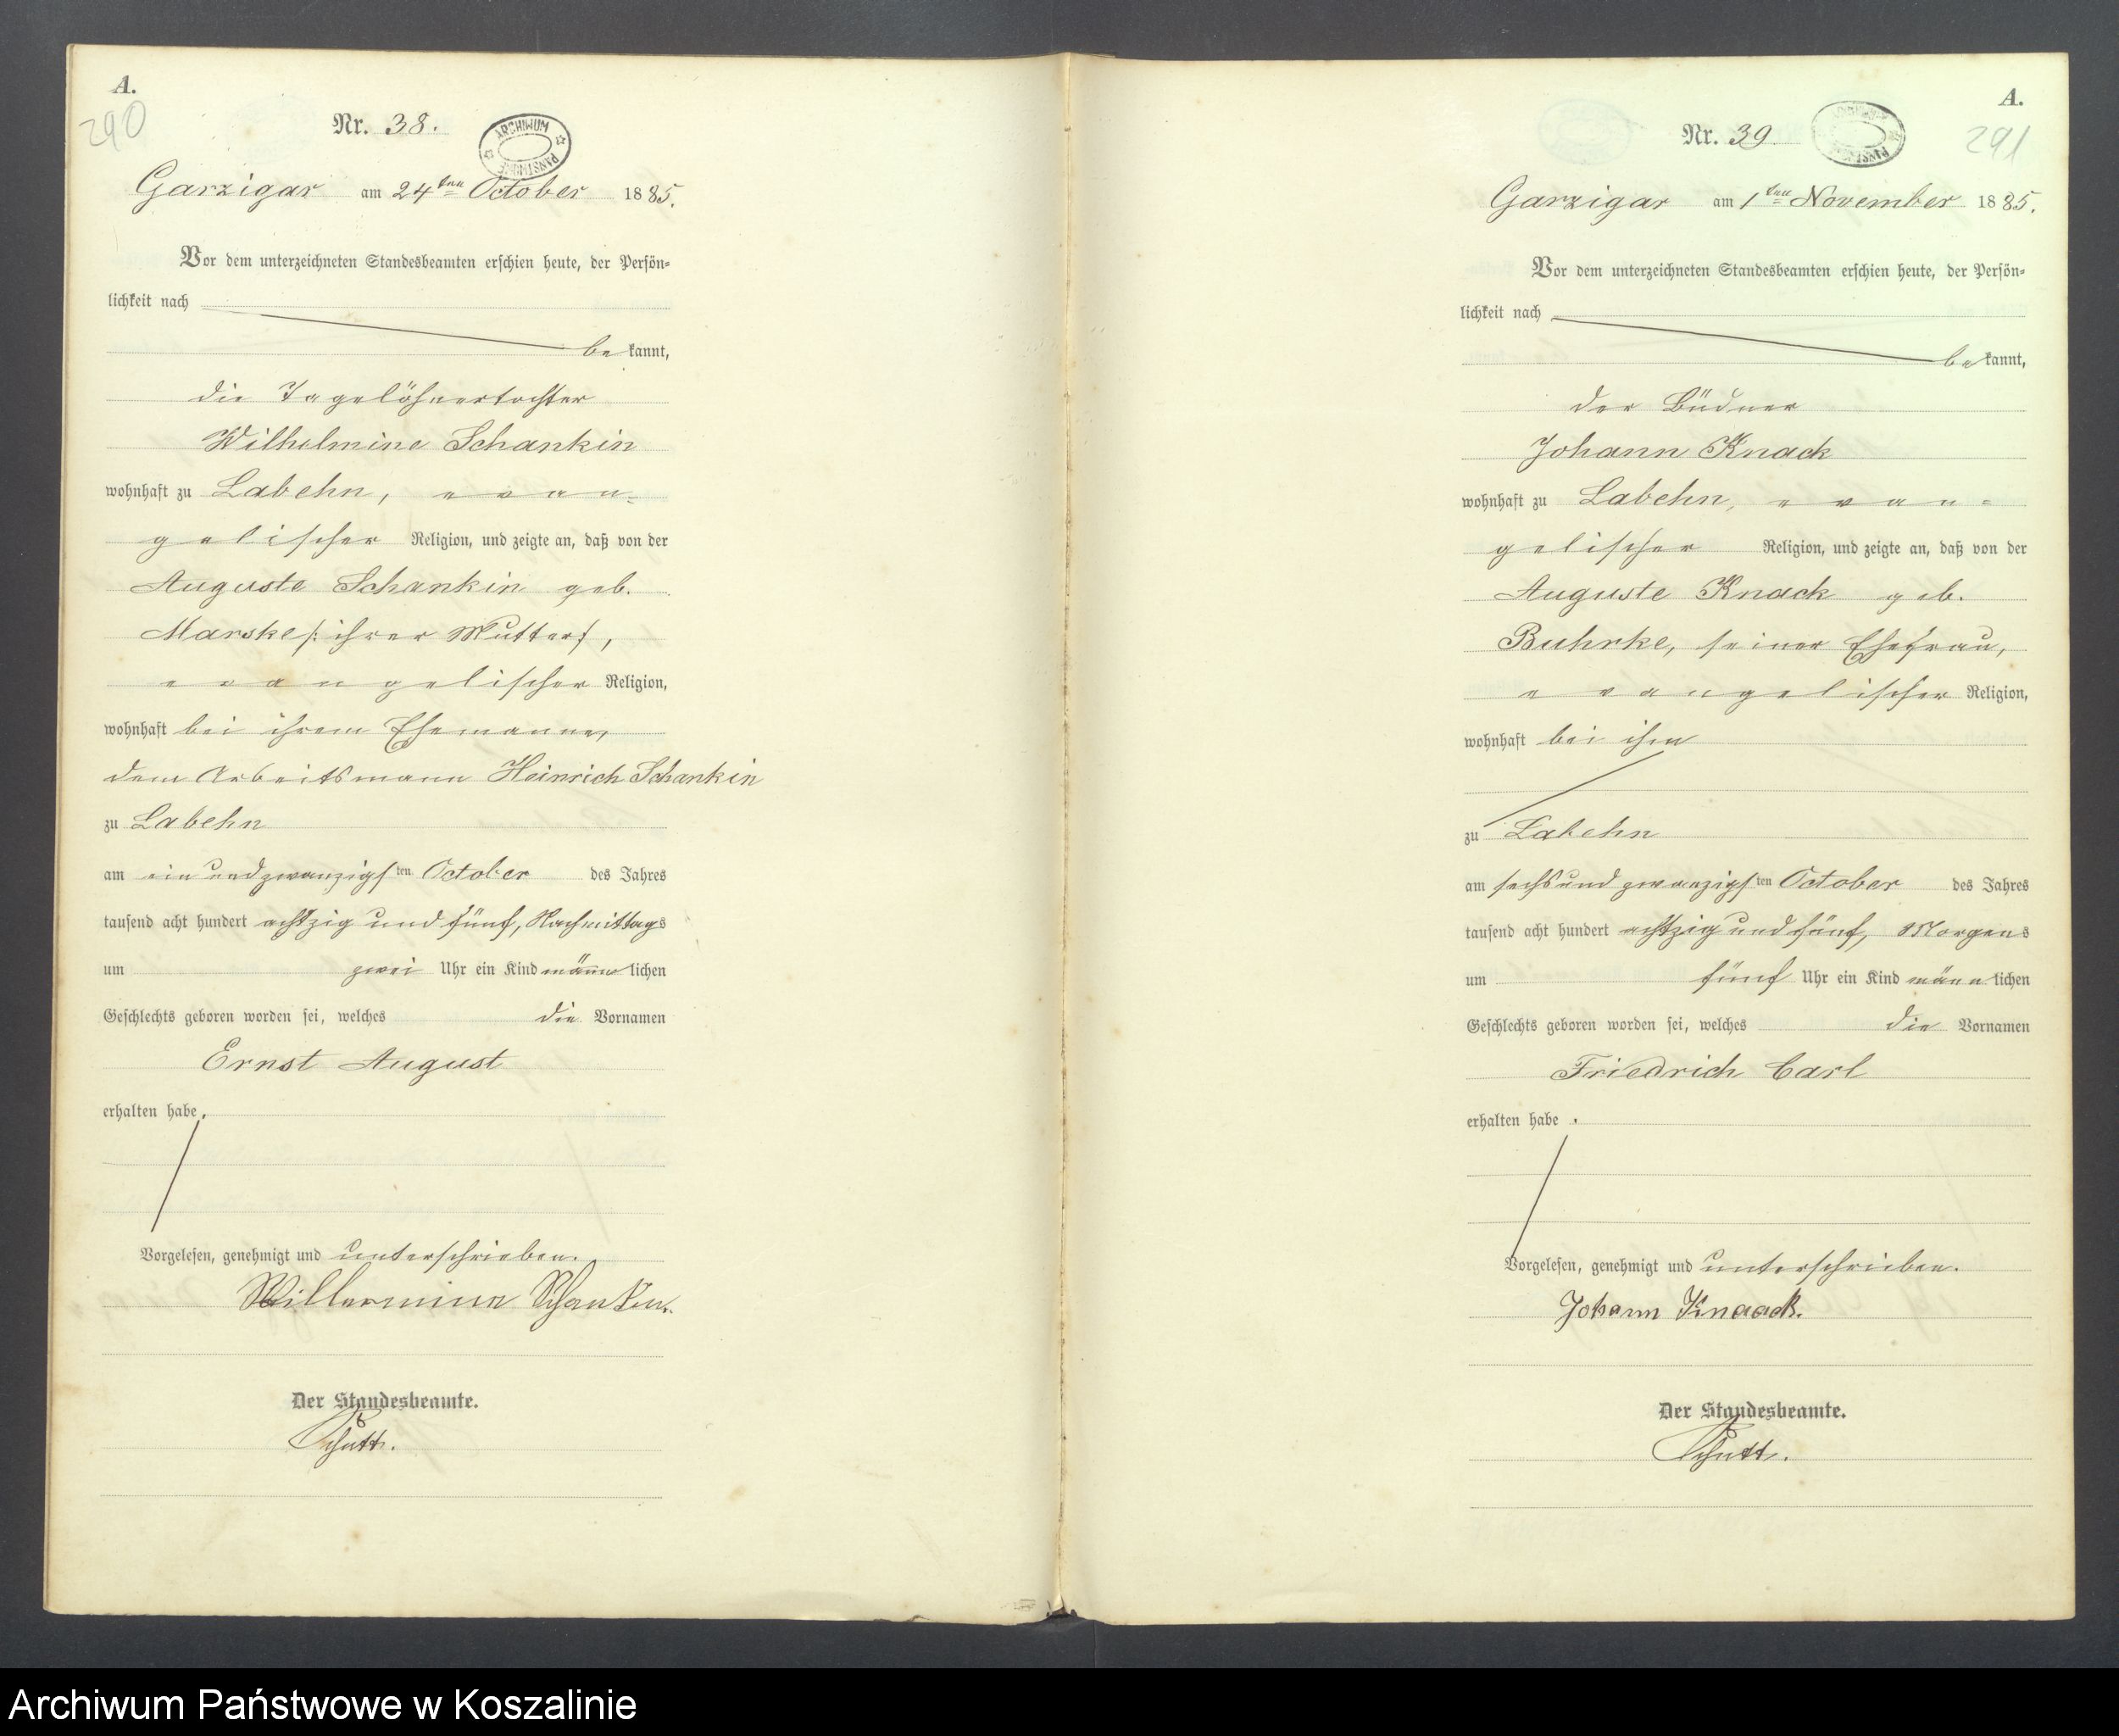 A.
290
Nr. 38.
ARCHIWUM PAŃSTWOWE
Garzigar am 24ten October 1885.
Vor dem unterzeichneten Standesbeamten erschien heute, der Persön=
lichkeit nach
bekannt,
die Tagelöhnertochter
Wilhelmine Schankin
wohnhaft zu Labehn, evan=
gelischer Religion, und zeigte an, daß von der
Auguste Schankin geb.
Marske /: ihrer Mutter /,
evangelischer Religion,
wohnhaft bei ihrem Ehemanne,
dem Arbeitsmann Heinrich Schankin
zu Labehn
am ein und zwanzigsten October des Jahres
tausend acht hundert achtzig und fünf, Nachmittags
um zwei Uhr ein Kind männlichen
Geschlechts geboren worden sei, welches die Vornamen
Ernst August
erhalten habe.
Vorgelesen, genehmigt und unterschrieben.
Willermine Schankin.
Der Standesbeamte.
Schutt.
A.
291
Nr. 39
Garzigar am 1ten November 1885.
Vor dem unterzeichneten Standesbeamten erschien heute, der Persön=
lichkeit nach
bekannt,
der Büdner
Johann Knack
wohnhaft zu Labehn, evan=
gelischer Religion, und zeigte an, daß von der
Auguste Knack geb.
Buhrke, seiner Ehefrau,
evangelischer Religion,
wohnhaft bei ihm
zu Labehn
am sechs und zwanzigsten October des Jahres
tausend acht hundert achtzig und fünf, Morgens
um fünf Uhr ein Kind männlichen
Geschlechts geboren worden sei, welches die Vornamen
Friedrich Carl
erhalten habe.
Vorgelesen, genehmigt und unterschrieben.
Johann Knaack.
Der Standesbeamte.
Schutt.
Archiwum Państwowe w Koszalinie